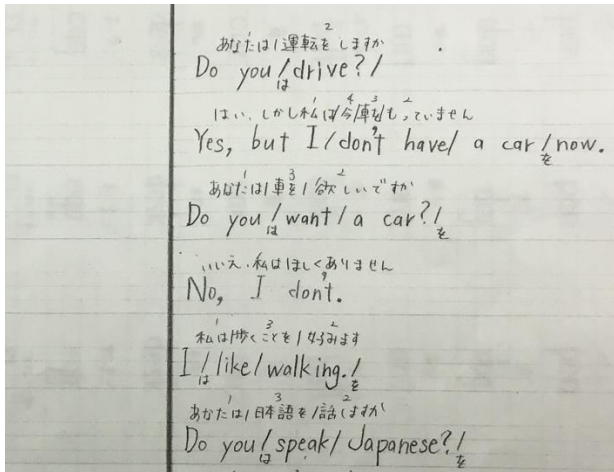 あなたは/運転をしますか
Do you/drive?/
はい、しかし私は/今/車を/もっていません
Yes, but I/don't have/ a car/now.
あなたは/車を/欲しいですか
Do you/want/a car?/
いいえ、私はほしくありません
No, I don't.
私は/歩くことを/好みます
I/like/walking./
あなたは/日本語を/話しますか
Do you/speak/Japanese?/